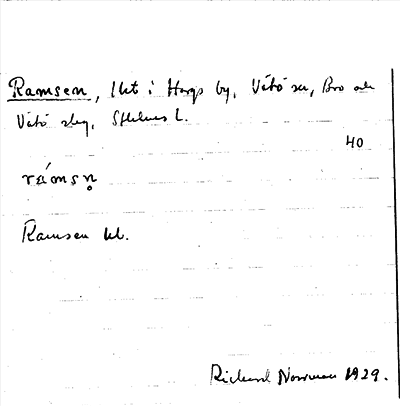 Ramsen, i Harps by, Vätö sn, Bro och
Vätö slg, Sthlms l.
40
rámsn̥
Ramsen kl.
Rickard Norrman 1929.